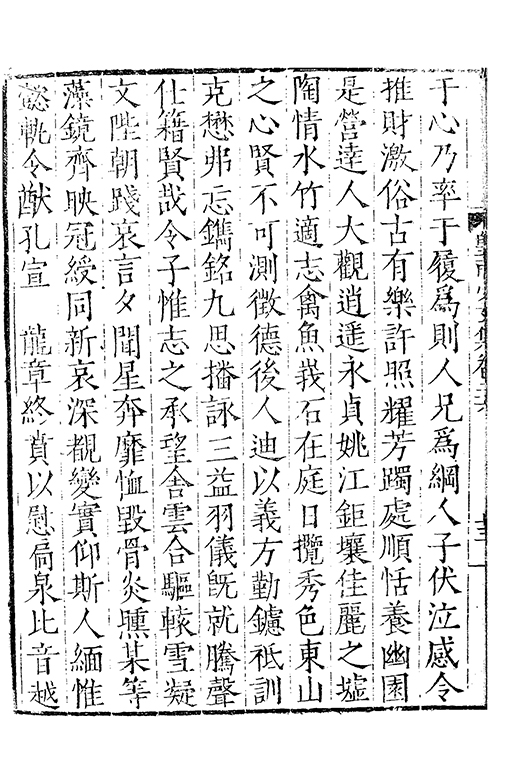 于心乃率于履爲則人兄爲綱人子伏泣感令
推財激俗古有樂許照耀芳躅處順恬養幽園
是營達人大觀逍遥永貞姚江鉅壤佳麗之墟
陶情水竹適志禽魚峩石在庭日攬秀色東山
之心賢不可測徵德後人迪以義方勤鑢祗訓
克懋弗忘鐫銘九思播詠三益羽儀旣就騰聲
仕籍賢哉令子惟志之承望舍雲合驅轅雪凝
文陛朝踐哀言夕聞星奔靡恤毀骨炎曛某等
藻鏡齊映冠綬同新哀深覩變實仰斯人緬惟
懿軌令猷孔宣　龍章終賁以慰扃泉比音越